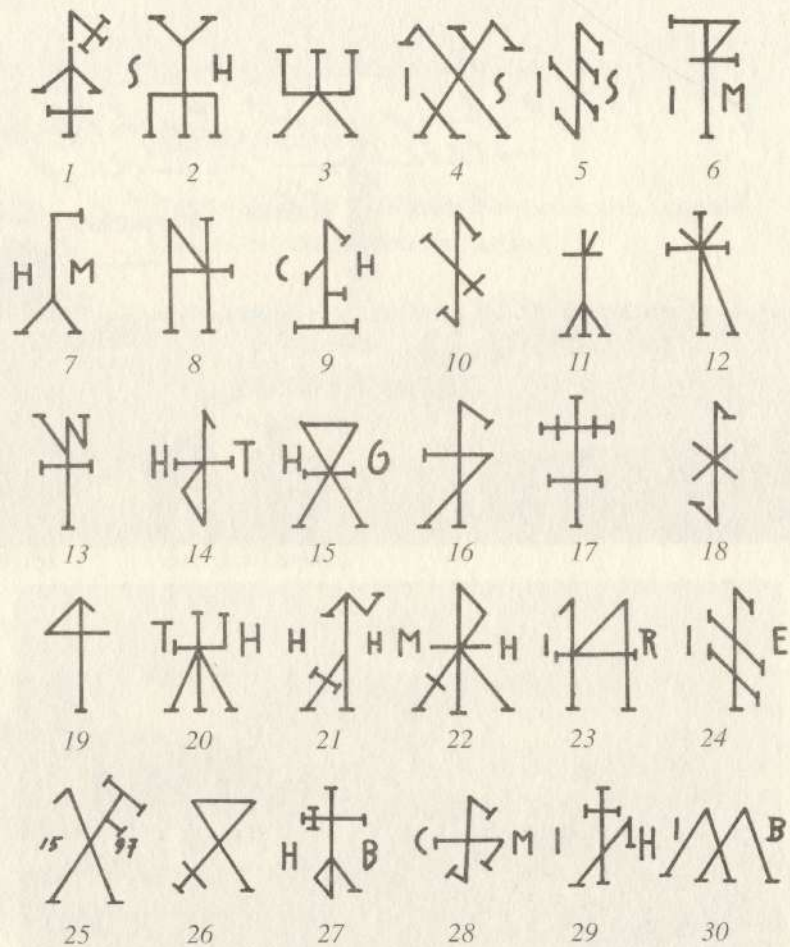 S H I S I S I M
1 2 3 4 5 6
H M C H
7 8 9 10 11 12
H T H G
13 14 15 16 17 18
T H H H M H I R I E
19 20 21 22 23 24
15 97 H B C M I H I B
25 26 27 28 29 30